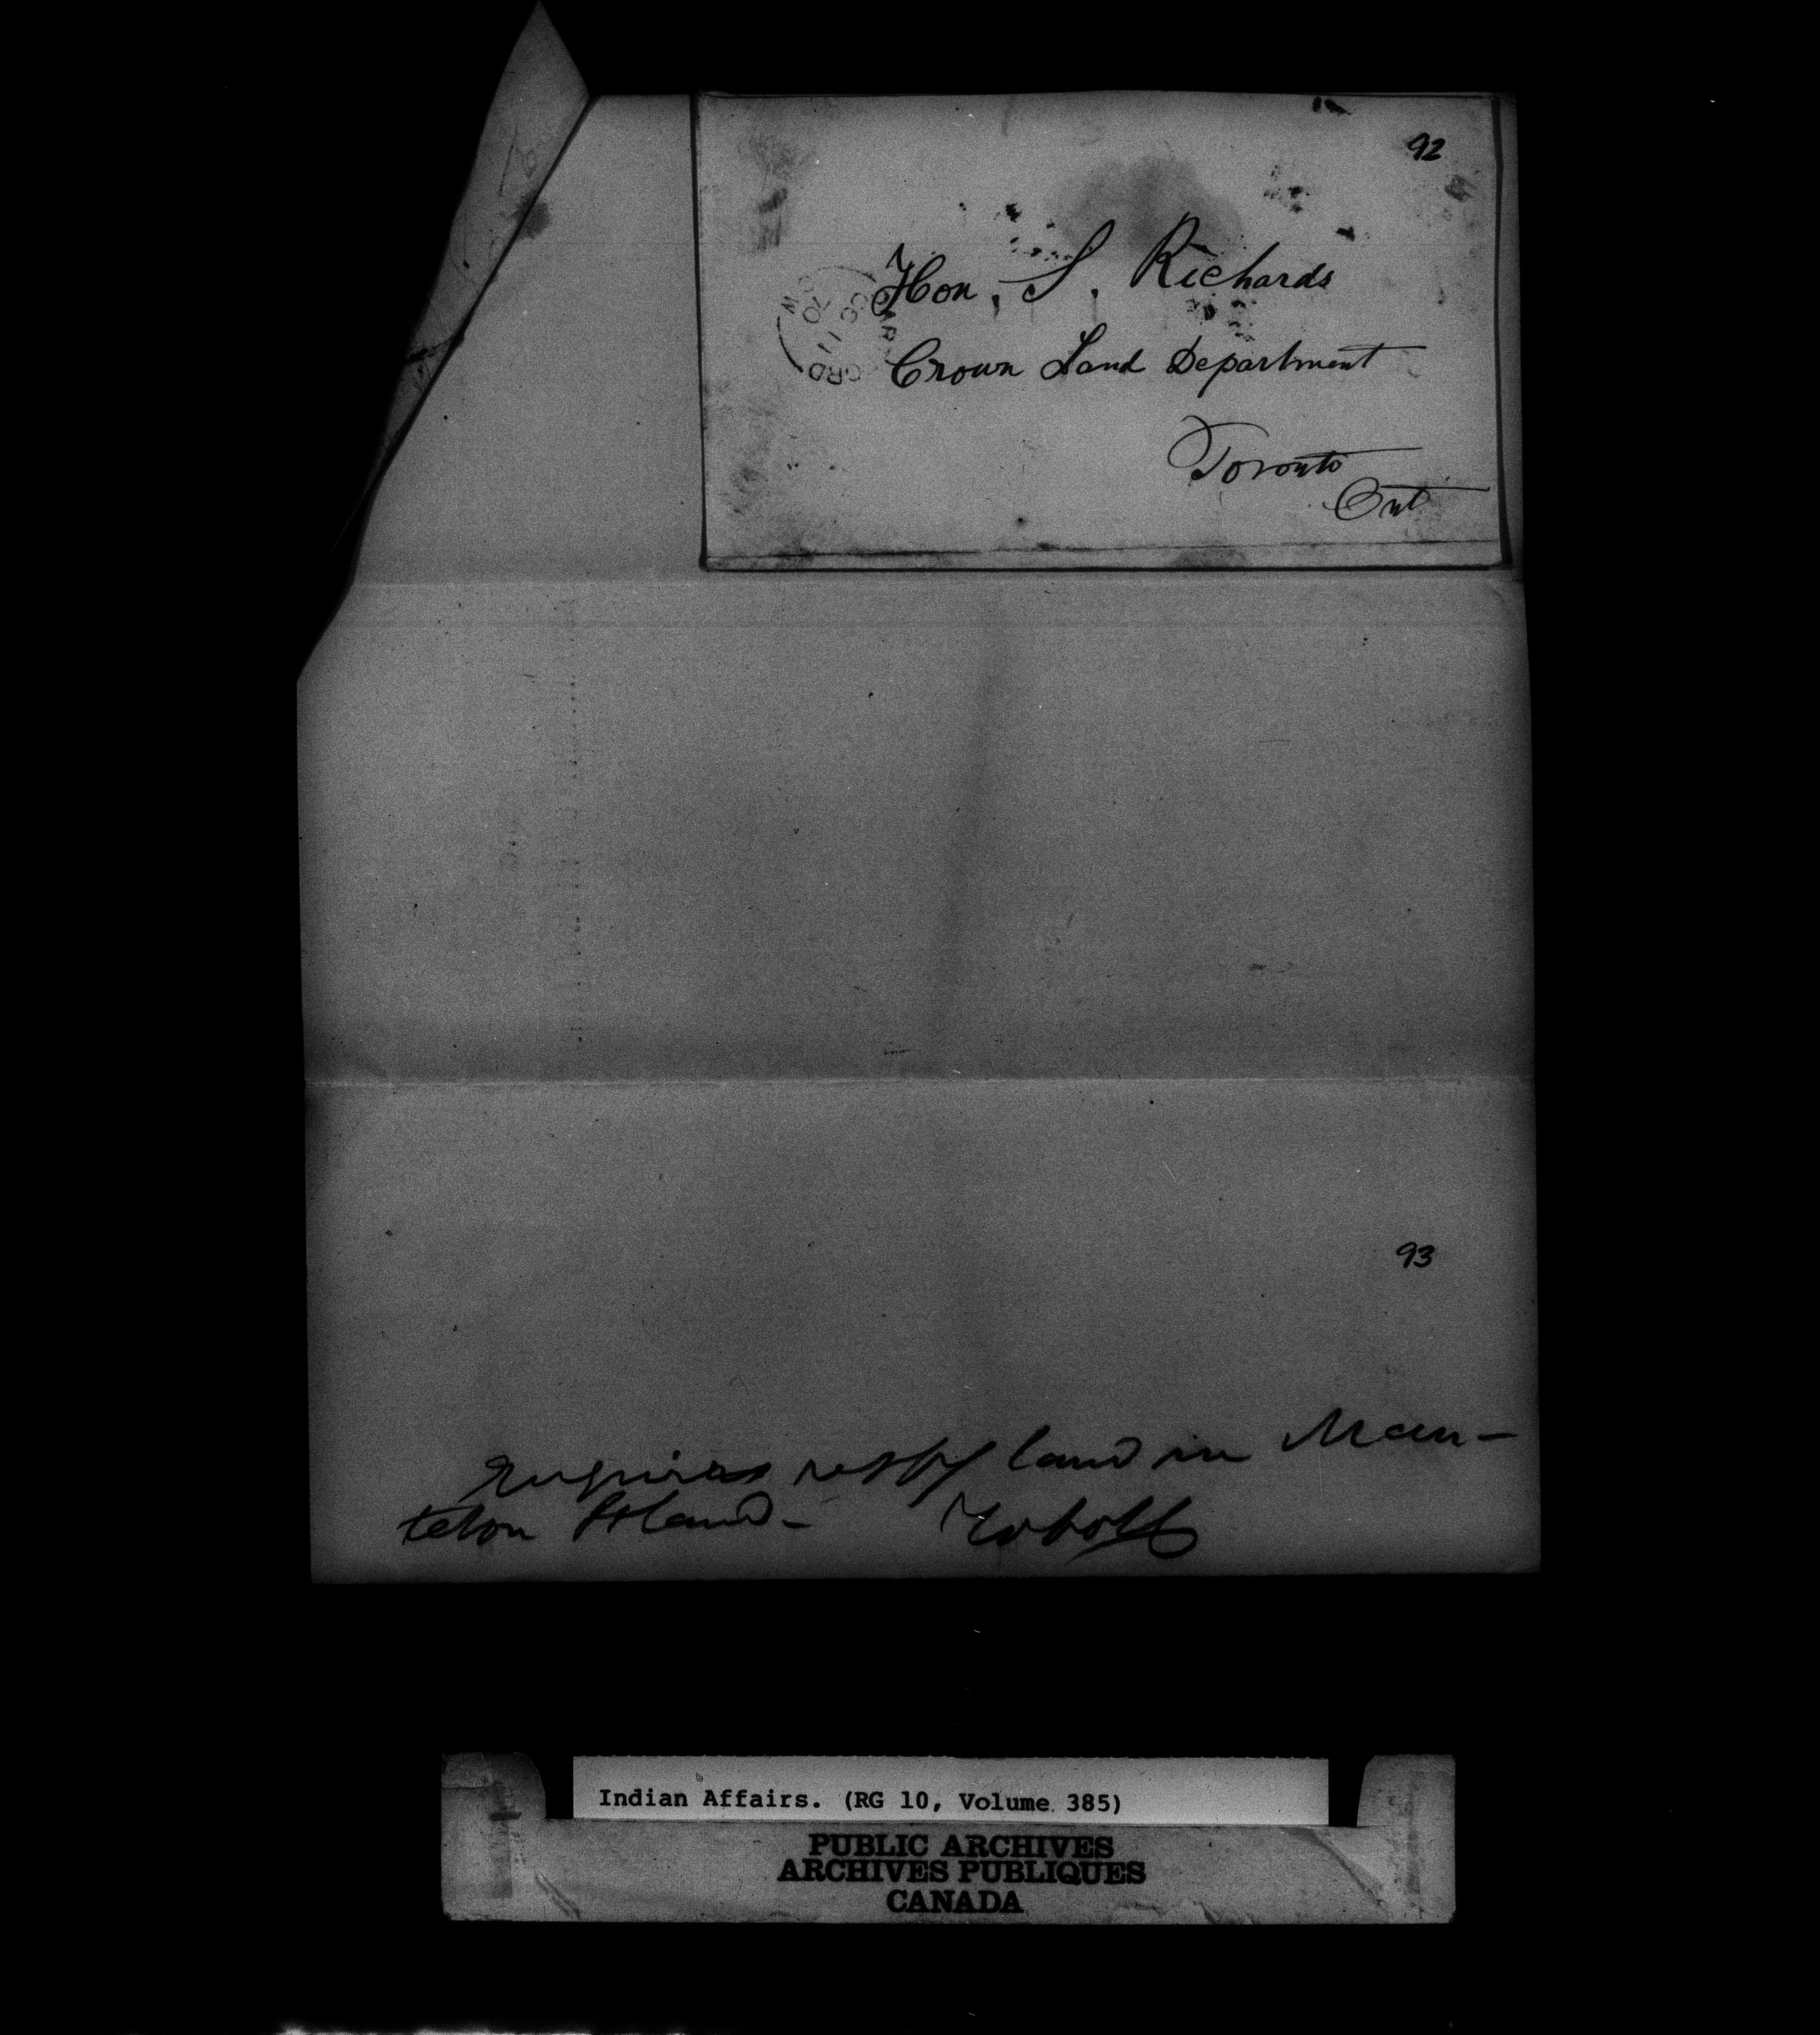 92
Hon. S. Richards
Crown Land Department
Toronto
Ont
93
Enquires respg land in Man-
Island -
Indian Affairs. (RG 10, Volume 385)
PUBLIC ARCHIVES
ARCHIVES PUBLIQUES
CANADA